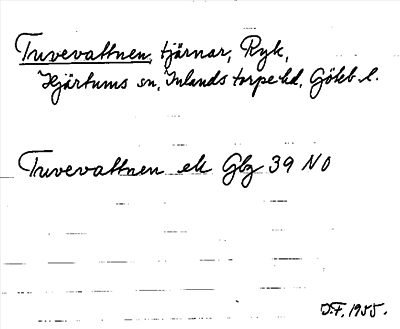 Tuvevattnen, tjärnar, Ryk,
Hjärtums sn, Inlands torpe hd, Göteb l.
Tuvevattnen ek Gbg 39 NO
J.F. 1955.